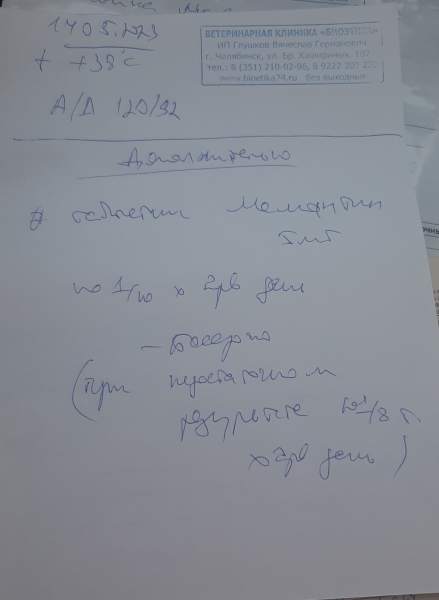 14.05.2023
t +38°C
А/Д 120/92
ВЕТЕРИНАРНАЯ КЛИНИКА «БИОЭТИКА»
ИП Глушков Вячеслав Германович
г. Челябинск, ул. Бр. Кашириных, 107
тел.: 8 (351) 210-02-96, 8 9222
www.bioetika74.ru без выходных
Дополнительно
таблетки Мемантин
5мг
по 1/10 х 2рв день
(при недостаточном
результате по 1/8 т.
х 2рв день)